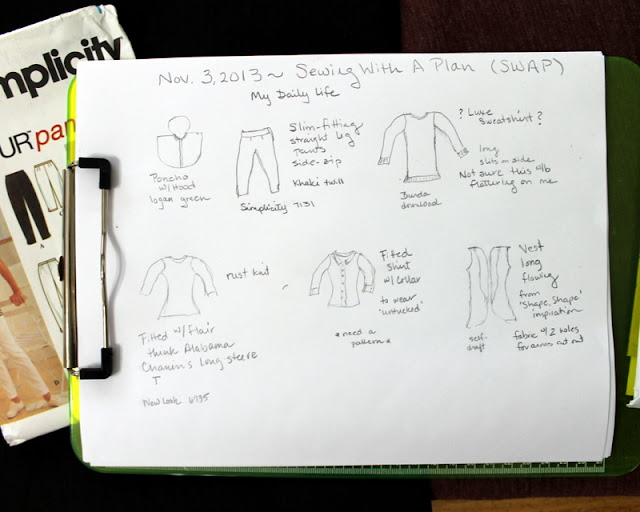 mplicity
UR pan
A
Nov. 3, 2013 ~ Sewing With A Plan (SWAP)
My Daily Life
Poncho
w/Hood
logan green
Slim-fitting
straight leg
pants
side-zip
Khaki twill
Simplicity 7131
? Luxe
Sweatshirt ?
long
slits on side
Not sure this w/b
flattering on me
Burda
download
rust knit
Fitted w/flair
think Alabama
Chanin's long sleeve
T
New Look 6735
Fitted
shirt
w/collar
to wear
"untucked"
* need a
pattern *
Vest
long
flowing
from
"Shape, Shape"
inspiration
self-
draft
fabric w/2 holes
for arms cut out